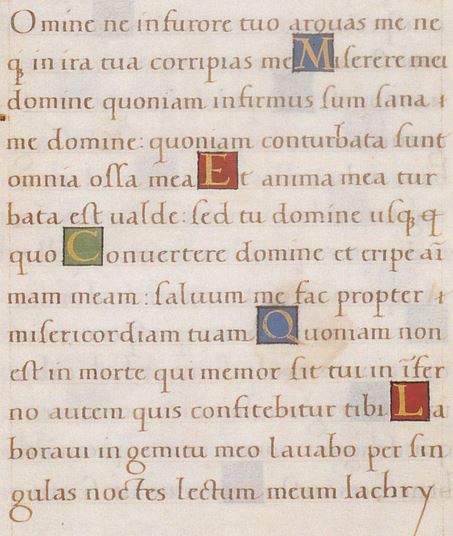 Omine ne in furore tuo arguas me ne
qꝫ in ira tua corripias me Miſerere mei
domine quoniam infirmus ſum ſana
me domine: quoniam conturbata ſunt
omnia oſſa mea Et anima mea tur
bata eſt ualde: ſed tu domine uſqꝫ
quo Conuertere domine et eripe aĩ
mam meam: ſaluum me fac propter
miſericordiam tuam Quoniam non
eſt in morte qui memor ſit tui in ĩfer
no autem quis confitebitur tibi La
boraui in gemitu meo lauabo per ſin
gulas noctes lectum meum lachry